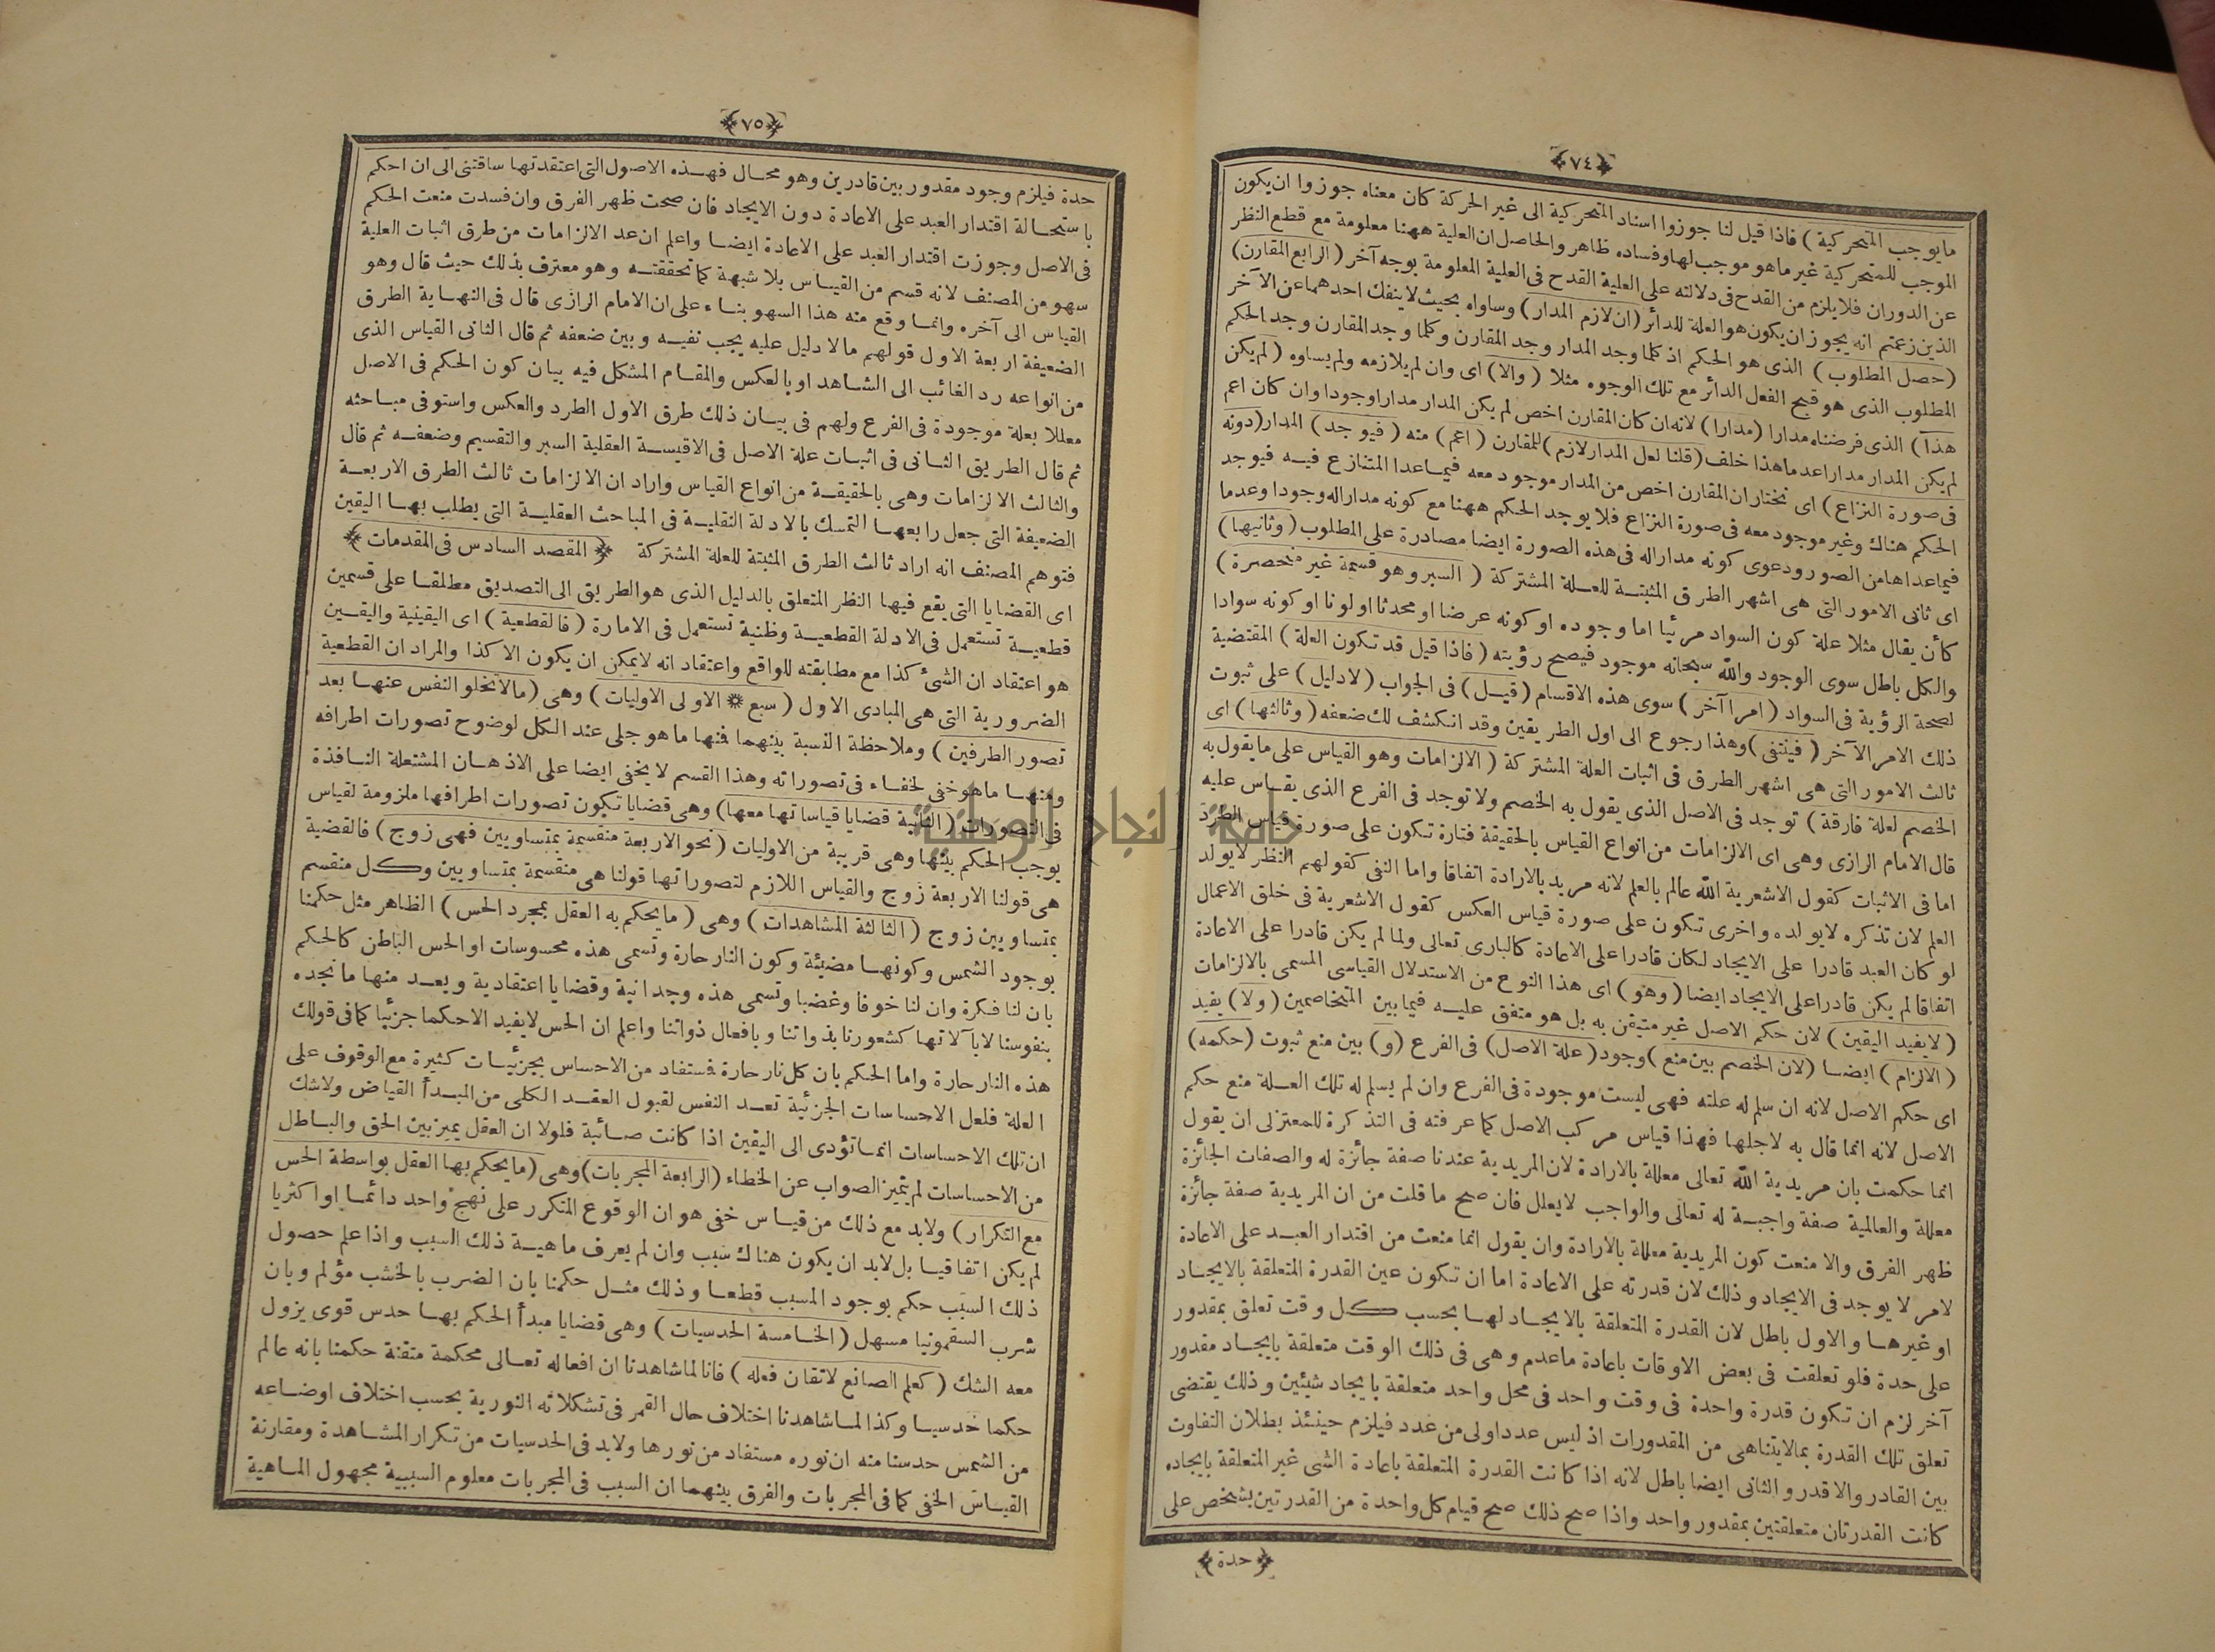 ﴿٧٤﴾
مايوجب المتحركية ) فاذا قيل لنا جوزوا اسناد المتحركية الى غير الحركة كان معناه جوزوا ان يكون
الموجب للمتحركية غير ماهو موجب لها وفساده ظاهر والحاصل ان العلية ههنا معلومة مع قطع النظر
عن الدوران فلا يلزم من القدح فى دلالته على العلية القدح فى العلية المعلومة بوجه آخر ( الرابع المقارن )
الذين زعمتم انه يجوز ان يكون هو العلة للدائر ( ان لازم المدار ) وساواه بحيث لاينفك احدهما عن الآخر
( حصل المطلوب ) الذى هو الحكم اذ كلما وجد المدار وجد المقارن وكلما وجد المقارن وجد الحكم
المطلوب الذى هو قبح الفعل الدائر مع تلك الوجوه مثلا ( والا ) اى وان لم يلازمه ولم يساوه ( لم يكن
هذا ) الذى فرضناه مدارا ( مدارا ) لانه ان كان المقارن اخص لم يكن المدار مدارا وجودا وان كان اعم
لم يكن المدار مدارا عدما هذا خلف ( قلنا لعل المدار لازم ) للمقارن ( اعم ) منه ( فيوجد ) المدار ( دونه
فى صورة النزاع ) اى نختار ان المقارن اخص من المدار موجود معه فيما عدا المتنازع فيه فيوجد
الحكم هناك وغير موجود معه فى صورة النزاع فلا يوجد الحكم ههنا مع كونه مدارا له وجودا وعدما
فيما عداها من الصور ودعوى كونه مدارا له فى هذه الصورة ايضا مصادرة على المطلوب ( وثانيها )
اى ثانى الامور التى هى اشهر الطرق المثبتة للعلة المشتركة ( السبر وهو قسمة غير منحصرة )
كأن يقال مثلا علة كون السواد مرئيا اما وجوده او كونه عرضا او محدثا اولونا او كونه سوادا
والكل باطل سوى الوجود والله سبحانه موجود فيصح رؤيته ( فاذا قيل قد تكون العلة ) المقتضية
لصحة الرؤية فى السواد ( امرا آخر ) سوى هذه الاقسام ( قيل ) فى الجواب ( لادليل ) على ثبوت
ذلك الامر الآخر ( فينتفى ) وهذا رجوع الى اول الطريقين وقد انكشف لك ضعفه ( وثالثها ) اى
ثالث الامور التى هى اشهر الطرق فى اثبات العلة المشتركة ( الالزامات وهو القياس على مايقول به
الخصم لعلة فارقة ) توجد فى الاصل الذى يقول به الخصم ولا توجد فى الفرع الذى يقاس عليه
قال الامام الرازى وهى اى الالزامات من انواع القياس بالحقيقة فتارة تكون على صورة قياس الطرد
اما فى الاثبات كقول الاشعرية الله عالم بالعلم لانه مريد بالارادة اتفاقا واما النفى كقولهم النظر لايولد
العلم لان تذكره لايولده واخرى تكون على صورة قياس العكس كقول الاشعرية فى خلق الاعمال
لو كان العبد قادرا على الايجاد لكان قادرا على الاعادة كالبارى تعالى ولما لم يكن قادرا على الاعادة
اتفاقا لم يكن قادرا على الايجاد ايضا ( وهو ) اى هذا النوع من الاستدلال القياسى المسمى بالالزامات
( لايفيد اليقين ) لان حكم الاصل غير متيقن به بل هو متفق عليه فيما بين المتخاصمين ( ولا ) يفيد
( الالزام ) ايضا ( لان الخصم بين منع ) وجود ( علة الاصل ) فى الفرع ( و ) بين منع ثبوت ( حكمه )
اى حكم الاصل لانه ان سلم له علته فهى ليست موجودة فى الفرع وان لم يسلم له تلك العلة منع حكم
الاصل لانه انما قال به لاجلها فهذا قياس مركب الاصل كما عرفته فى التذكرة للمعتزلى ان يقول
انما حكمت بان مريدية الله تعالى معللة بالارادة لان المريدية عندنا صفة جائزة له والصفات الجائزة
معللة والعالمية صفة واجبة له تعالى والواجب لايعلل فان صح ما قلت من ان المريدية صفة جائزة
ظهر الفرق والا منعت كون المريدية معللة بالارادة وان يقول انما منعت من اقتدار العبد على الاعادة
لامر لا يوجد فى الايجاد وذلك لان قدرته على الاعادة اما ان تكون عين القدرة المتعلقة بالايجاد
او غيرها والاول باطل لان القدرة المتعلقة بالايجاد لها بحسب كل وقت تعلق بمقدور
على حدة فلو تعلقت فى بعض الاوقات باعادة ماعدم وهى فى ذلك الوقت متعلقة بايجاد مقدور
آخر لزم ان تكون قدرة واحدة فى وقت واحد فى محل واحد متعلقة بايجاد شيئين وذلك يقتضى
تعلق تلك القدرة بمالايتناهى من المقدورات اذ ليس عدد اولى من عدد فيلزم حينئذ بطلان التفاوت
بين القادر والاقدر والثانى ايضا باطل لانه اذا كانت القدرة المتعلقة باعادة الشئ غير المتعلقة بايجاده
كانت القدرتان متعلقتين بمقدور واحد واذا صح ذلك صح قيام كل واحدة من القدرتين بشخص على
﴿ حدة ﴾
﴿٧٥﴾
حدة فيلزم وجود مقدور بين قادرين وهو محال فهذه الاصول التى اعتقدتها ساقتنى الى ان احكم
باستحالة اقتدار العبد على الاعادة دون الايجاد فان صحت ظهر الفرق وان فسدت منعت الحكم
فى الاصل وجوزت اقتدار العبد على الاعادة ايضا واعلم ان عد الالزامات من طرق اثبات العلية
سهو من المصنف لانه قسم من القياس بلا شبهة كما تحققته وهو معترف بذلك حيث قال وهو
القياس الى آخره وانما وقع منه هذا السهو بناء على ان الامام الرازى قال فى النهاية الطرق
الضعيفة اربعة الاول قولهم مالا دليل عليه يجب نفيه وبين ضعفه ثم قال الثانى القياس الذى
من انواعه رد الغائب الى الشاهد او بالعكس والمقام المشكل فيه بيان كون الحكم فى الاصل
معللا بعلة موجودة فى الفرع ولهم فى بيان ذلك طرق الاول الطرد والعكس واستوفى مباحثه
ثم قال الطريق الثانى فى اثبات علة الاصل فى الاقيسة العقلية السبر والتقسيم وضعفه ثم قال
والثالث الالزامات وهى بالحقيقة من انواع القياس واراد ان الالزامات ثالث الطرق الاربعة
الضعيفة التى جعل رابعها التمسك بالادلة النقلية فى المباحث العقلية التى يطلب بها اليقين
فتوهم المصنف انه اراد ثالث الطرق المثبتة للعلة المشتركة ﴿ المقصد السادس فى المقدمات ﴾
اى القضايا التى يقع فيها النظر المتعلق بالدليل الذى هو الطريق الى التصديق مطلقا على قسمين
قطعية تستعمل فى الادلة القطعية وظنية تستعمل فى الامارة ( فالقطعية ) اى اليقينية واليقين
هو اعتقاد ان الشئ كذا مع مطابقته للواقع واعتقاد انه لايمكن ان يكون الا كذا والمراد ان القطعية
الضرورية التى هى المبادى الاول ( سبع * الاولى الاوليات ) وهى ( مالاتخلو النفس عنها بعد
تصور الطرفين ) وملاحظة النسبة بينهما فمنها ما هو جلى عند الكل لوضوح تصورات اطرافه
ومنها ماهو خفى لخفاء فى تصوراته وهذا القسم لا يخفى ايضا على الاذهان المشتعلة النافذة
فى التصورات ( الثانية قضايا قياساتها معها ) وهى قضايا تكون تصورات اطرافها ملزومة لقياس
يوجب الحكم بينها وهى قريبة من الاوليات ( نحو الاربعة منقسمة بمتساويين فهى زوج ) فالقضية
هى قولنا الاربعة زوج والقياس اللازم لتصوراتها قولنا هى منقسمة بمتساويين وكل منقسم
بمتساويين زوج ( الثالثة المشاهدات ) وهى ( مايحكم به العقل بمجرد الحس ) الظاهر مثل حكمنا
بوجود الشمس وكونها مضيئة وكون النار حارة وتسمى هذه محسوسات او الحس الباطن كالحكم
بان لنا فكرة وان لنا خوفا وغضبا وتسمى هذه وجدانية وقضايا اعتقادية ويعد منها مانجده
بنفوسنا لابآلاتها كشعورنا بذواتنا وبافعال ذواتنا واعلم ان الحس لايفيد الاحكما جزئيا كما فى قولك
هذه النار حارة واما الحكم بان كل نار حارة فمستفاد من الاحساس بجزئيات كثيرة مع الوقوف على
العلة فلعل الاحساسات الجزئية تعد النفس لقبول العقد الكلى من المبدأ الفياض ولاشك
ان تلك الاحساسات انما تؤدى الى اليقين اذا كانت صائبة فلولا ان العقل يميز بين الحق والباطل
من الاحساسات لم يتميز الصواب عن الخطاء ( الرابعة المجربات ) وهى ( مايحكم بها العقل بواسطة الحس
مع التكرار ) ولابد مع ذلك من قياس خفى هو ان الوقوع المتكرر على نهج واحد دائما او اكثريا
لم يكن اتفاقيا بل لابد ان يكون هناك سبب وان لم يعرف ماهية ذلك السبب واذا علم حصول
ذلك السبب حكم بوجود المسبب قطعا وذلك مثل حكمنا بان الضرب بالخشب مؤلم وبان
شرب السقمونيا مسهل ( الخامسة الحدسيات ) وهى قضايا مبدأ الحكم بها حدس قوى يزول
معه الشك ( كعلم الصانع لاتقان فعله ) فانا لما شاهدنا ان افعاله تعالى محكمة متقنة حكمنا بانه عالم
حكما حدسيا وكذا لما شاهدنا اختلاف حال القمر فى تشكلاته النورية بحسب اختلاف اوضاعه
من الشمس حدسنا منه ان نوره مستفاد من نورها ولابد فى الحدسيات من تكرار المشاهدة ومقارنة
القياس الخفى كما فى المجربات والفرق بينهما ان السبب فى المجربات معلوم السببية مجهول الماهية
جامعة النجاح الوطنية